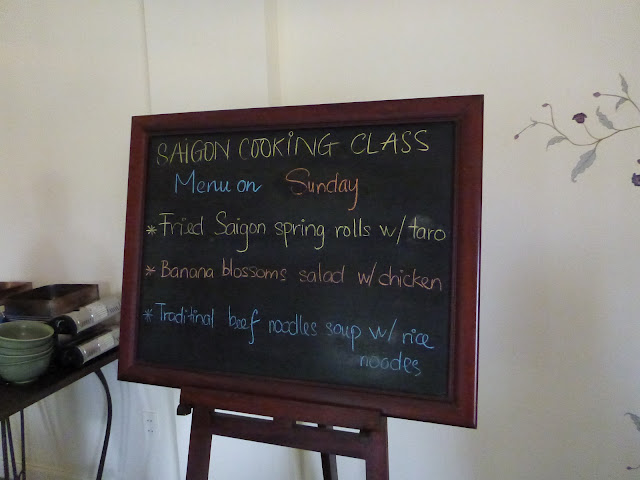 SAIGON COOKING CLASS
Menu on Sunday
* Fried Saigon spring rolls w/ taro
* Banana blossoms salad w/ chicken
* Traditinal beef noodles soup w/ rice
noodes